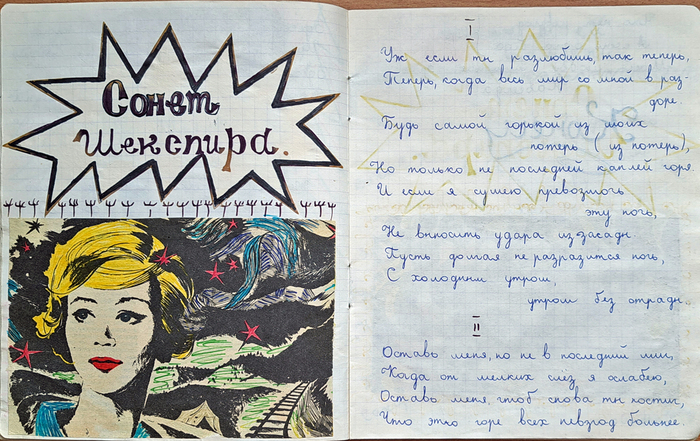 Сонет
Шекспира.
I
Уж если ты разлюбишь, так теперь,
Теперь, когда весь мир со мной в раз-
доре.
Будь самой горькой из моих
потерь (из потерь),
Но только не последней каплей горя.
И если я сумею превозмочь
эту ночь,
Не выносить удара из засады.
Пусть долгая не разразится ночь,
С холодным утром,
утром без отрады.
II
Оставь меня, но не в последний миг,
Когда от мелких слез я слабею,
Оставь меня, чтоб снова ты постиг,
Что это горе всех невзгод больнее.